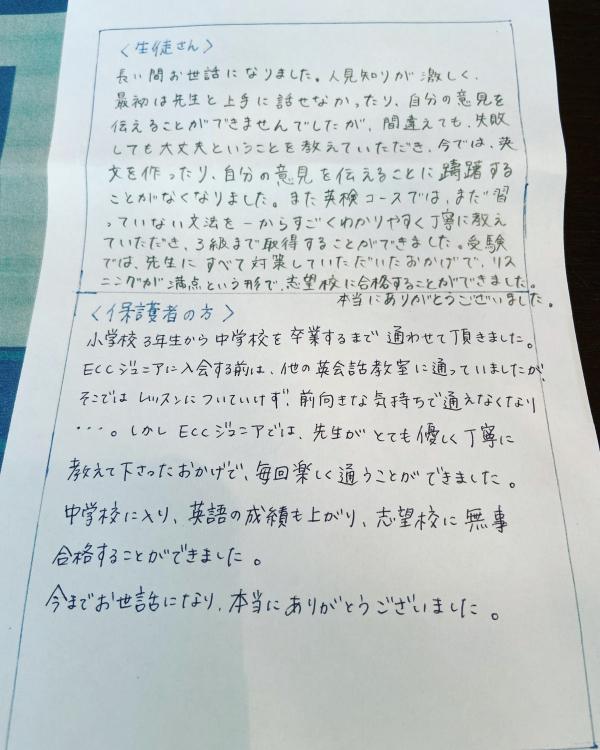 〈生徒さん〉
長い間お世話になりました。人見知りが激しく、
最初は先生と上手に話せなかったり、自分の意見を
伝えることができませんでしたが、間違えても、失敗
しても大丈夫ということを教えていただき、今では、英
文を作ったり、自分の意見を伝えることに躊躇する
ことがなくなりました。また英検コースでは、まだ習
っていない文法を一からすごくわかりやすく丁寧に教え
ていただき、3級まで取得することができました。受験
では、先生にすべて対策していただいたおかげで、リス
ニングが満点という形で、志望校に合格することができました。
本当にありがとうございました。
〈保護者の方〉
小学校3年生から中学校を卒業するまで通わせて頂きました。
ECCジュニアに入会する前は、他の英会話教室に通っていましたが、
そこではレッスンについていけず、前向きな気持ちで通えなくなり
・・・。しかしECCジュニアでは、先生がとても優しく丁寧に
教えて下さったおかげで、毎回楽しく通うことができました。
中学校に入り、英語の成績も上がり、志望校に無事
合格することができました。
今までお世話になり、本当にありがとうございました。